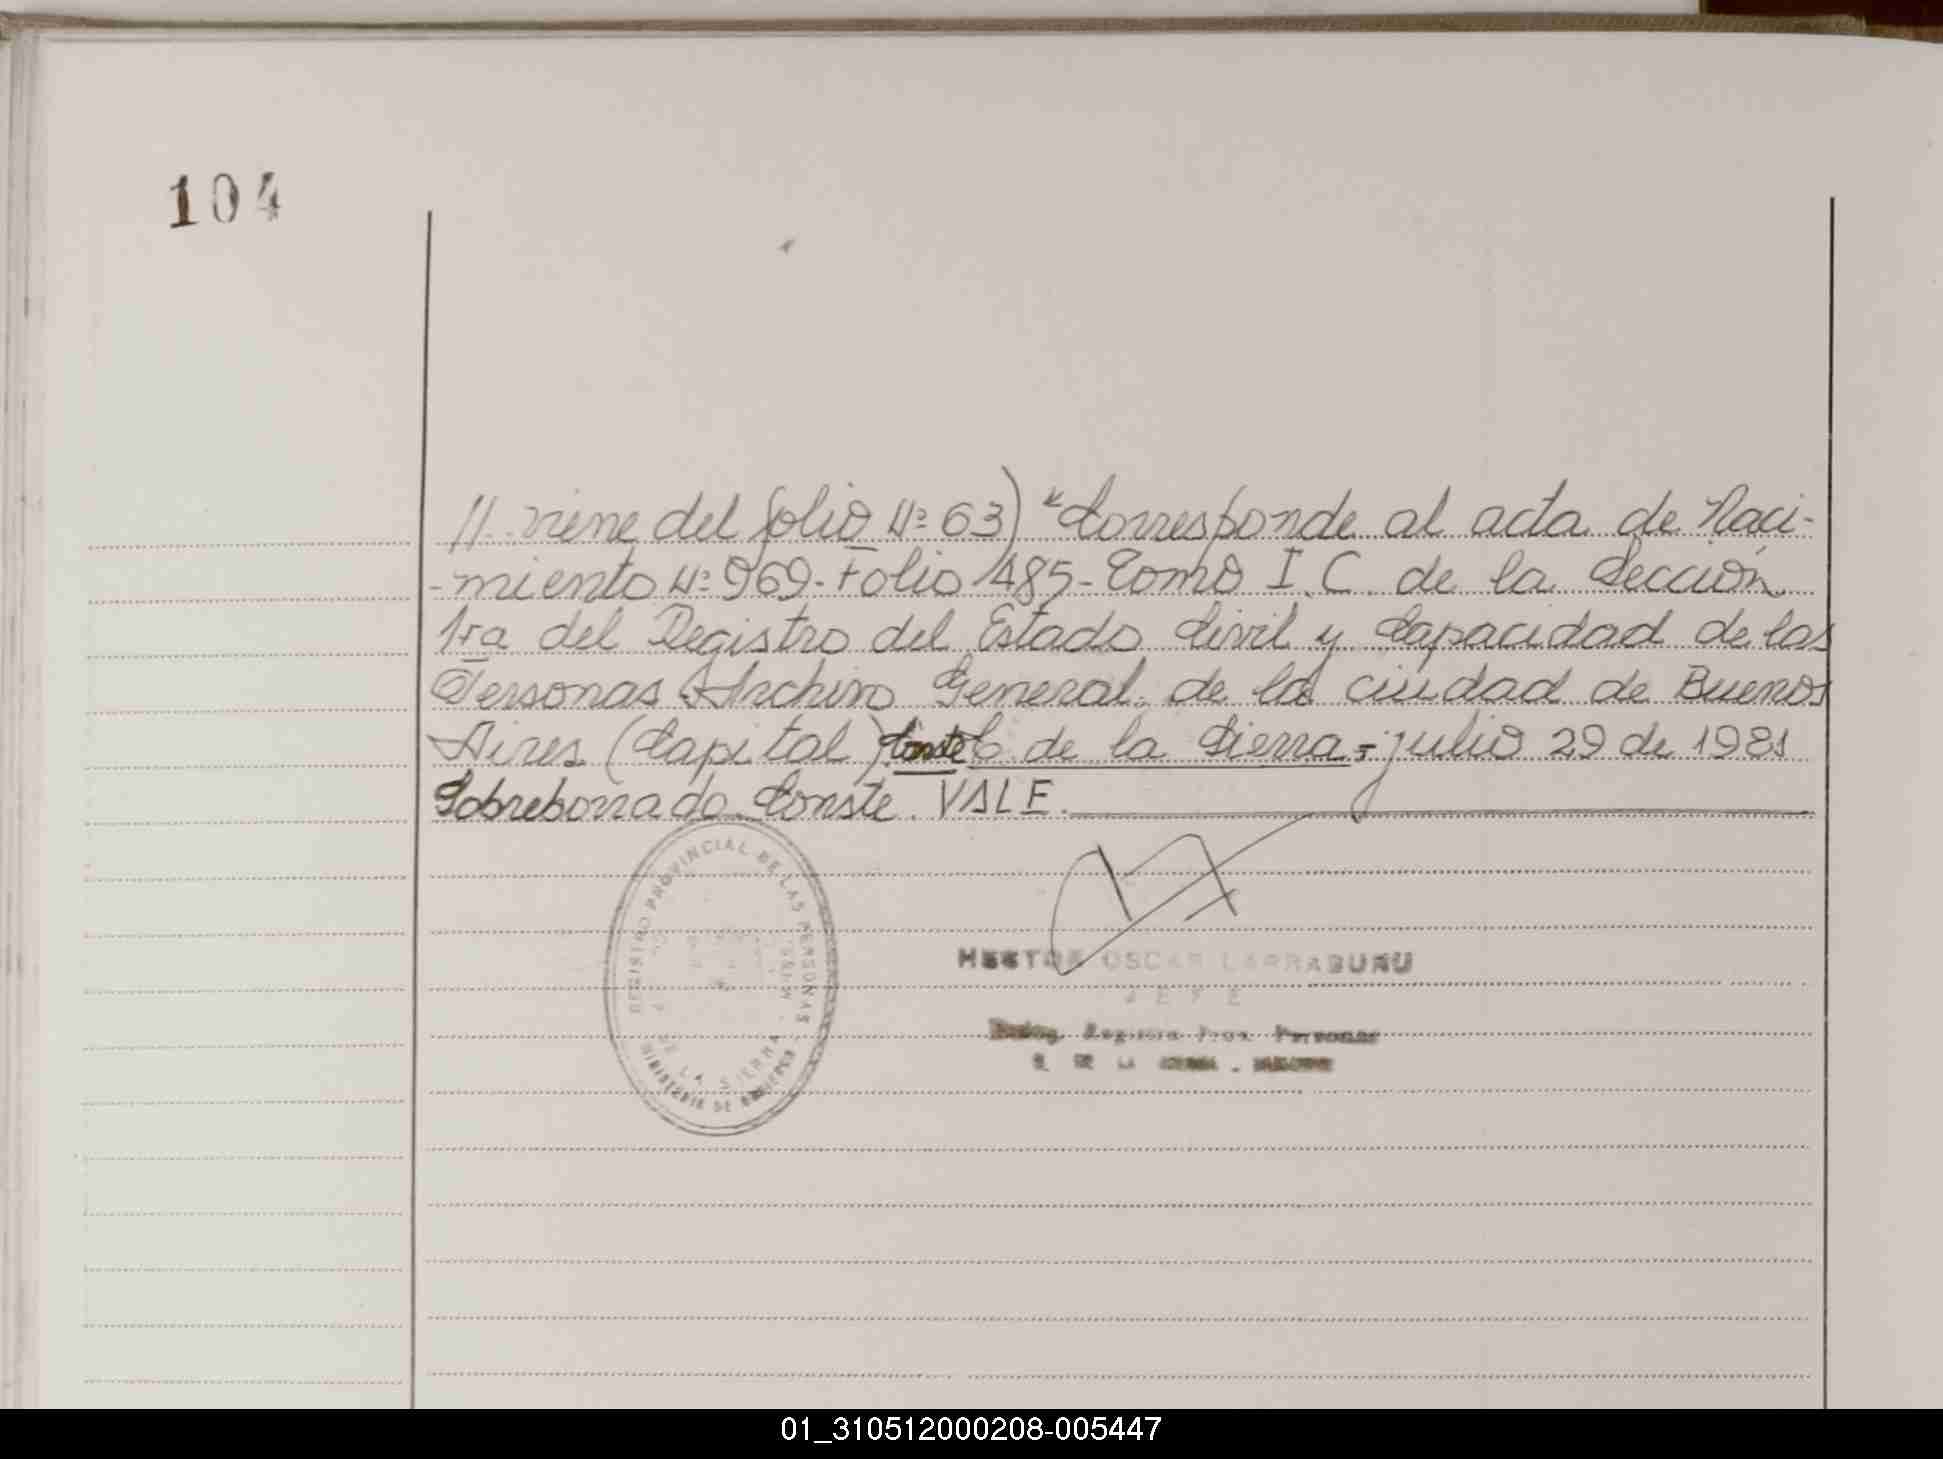 104
//. viene del folio Nº 63) "Corresponde al acta de Naci-
-miento Nº 969- Folio 485- Tomo I.C. de la Sección
1ra del Registro del Estado Civil y Capacidad de las
Personas Archivo General de la ciudad de Buenos
Aires (Capital) Conste C. de la Sierra - julio 29 de 1981
Sobreborrado. Conste. VALE.
REGISTRO PROVINCIAL DE LAS PERSONAS
DE LA SIERRA
MINISTERIO DE GOBIERNO
HECTOR OSCAR LARRABURU
JEFE
Registro Prov. Personas
DE LA SIERRA
01_310512000208-005447